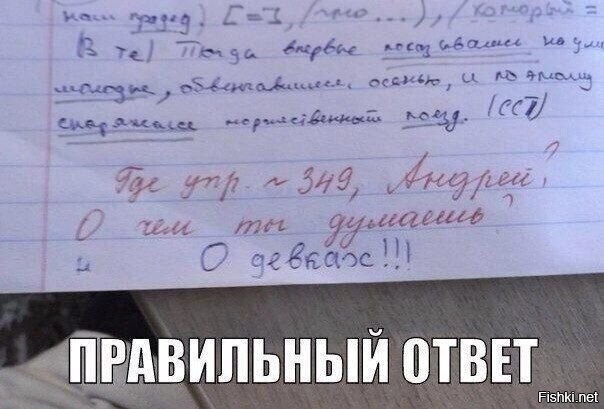 наш прадед) [=], (что...), (который =
(В те) Тогда впервые показывались на ули
молодые, обвенчавшиеся осенью, и поэтому
снаряжался торжественный поезд. (ССП)
Где упр. ~ 349, Андрей?
О чем ты думаешь?
О девках!!!
ПРАВИЛЬНЫЙ ОТВЕТ
Fishki.net